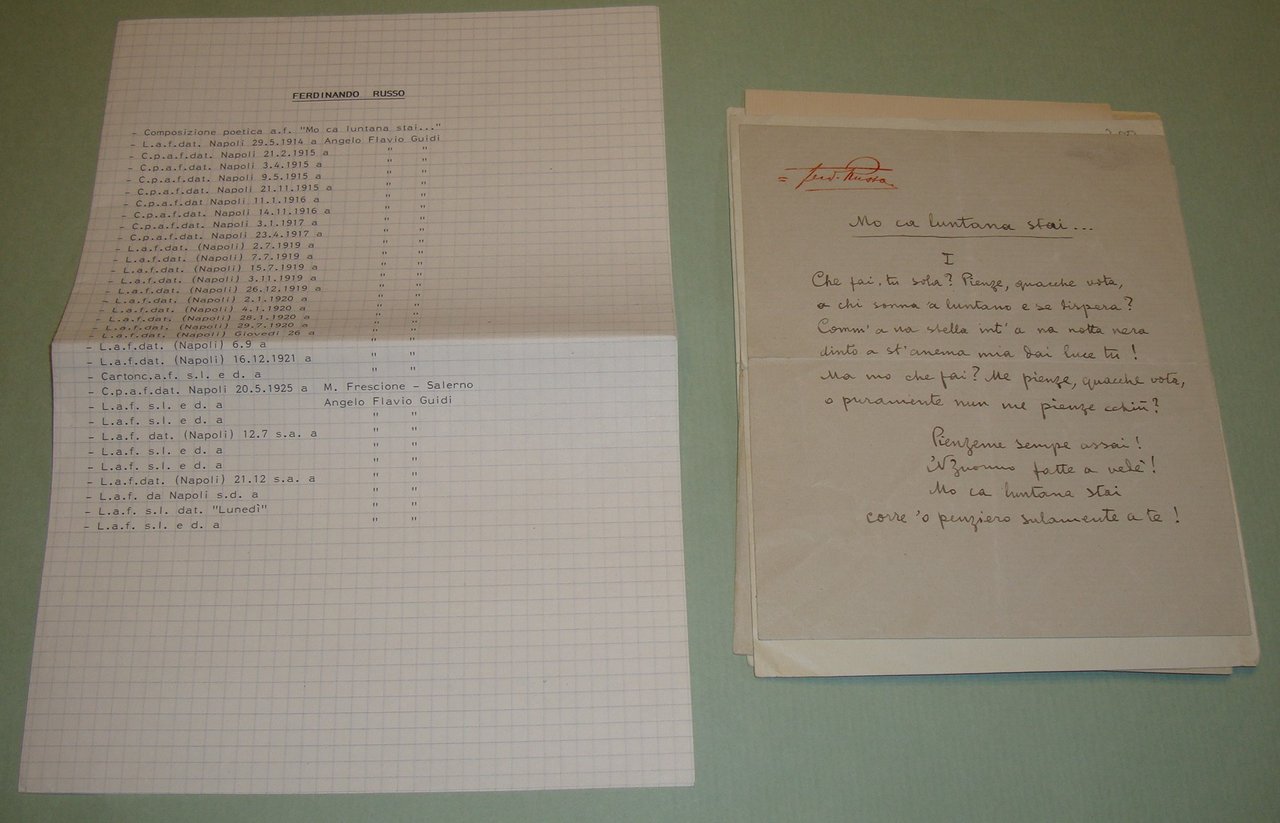 FERDINANDO RUSSO
- Composizione poetica a.f. "Mo ca luntana stai..."
- L.a.f.dat. Napoli 29.5.1914 a Angelo Flavio Guidi
- C.p.a.f.dat. Napoli 21.2.1915 a " "
- C.p.a.f.dat. Napoli 3.4.1915 a " "
- C.p.a.f.dat. Napoli 9.5.1915 a " "
- C.p.a.f.dat. Napoli 21.11.1915 a " "
- C.p.a.f.dat Napoli 11.1.1916 a " "
- C.p.a.f.dat. Napoli 14.11.1916 a " "
- C.p.a.f.dat. Napoli 3.1.1917 a " "
- C.p.a.f.dat. Napoli 23.4.1917 a " "
- L.a.f.dat. (Napoli) 2.7.1919 a " "
- L.a.f.dat. (Napoli) 7.7.1919 a " "
- L.a.f.dat. (Napoli) 15.7.1919 a " "
- L.a.f.dat. (Napoli) 3.11.1919 a " "
- L.a.f.dat. (Napoli) 26.12.1919 a " "
- L.a.f.dat. (Napoli) 2.1.1920 a " "
- L.a.f.dat. (Napoli) 4.1.1920 a " "
- L.a.f.dat. (Napoli) 28.1.1920 a " "
- L.a.f.dat. (Napoli) 29.7.1920 a " "
- L.a.f.dat. (Napoli) Giovedì 26 a " "
- L.a.f.dat. (Napoli) 6.9 a " "
- L.a.f.dat. (Napoli) 16.12.1921 a " "
- Cartonc.a.f. s.l. e d. a " "
- C.p.a.f.dat. Napoli 20.5.1925 a M. Frescione - Salerno
- L.a.f. s.l. e d. a Angelo Flavio Guidi
- L.a.f. s.l. e d. a " "
- L.a.f. dat. (Napoli) 12.7 s.a. a " "
- L.a.f. s.l. e d. a " "
- L.a.f. s.l. e d. a " "
- L.a.f.dat. (Napoli) 21.12 s.a. a " "
- L.a.f. da Napoli s.d. a " "
- L.a.f. s.l. dat. "Lunedì" " "
- L.a.f. s.l. e d. a " "
= Ferd. Russo
Mo ca luntana stai...
I
Che fai, tu sola? Pienze, quacche vota,
a chi sonna 'a luntano e se dispera?
Comm'a na stella int'a na notta nera
dinto a st'anema mia dai luce tu!
Ma mo che fai? Me pienze, quacche vota,
o puramente nun me pienze cchiù?
Pienzeme sempe assai!
'Nzuonno fatte a vedè!
Mo ca luntana stai
corre 'o penziero sulamente a te!